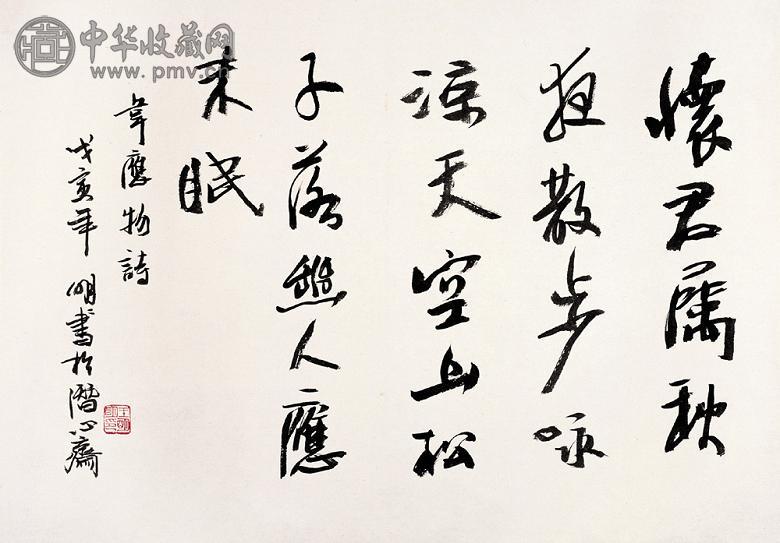 中华收藏网
www.pmv.cn
懷君屬秋
夜散步咏
涼天空山松
子落幽人應
未眠
韋應物詩
戊寅年 明書於潛心齋